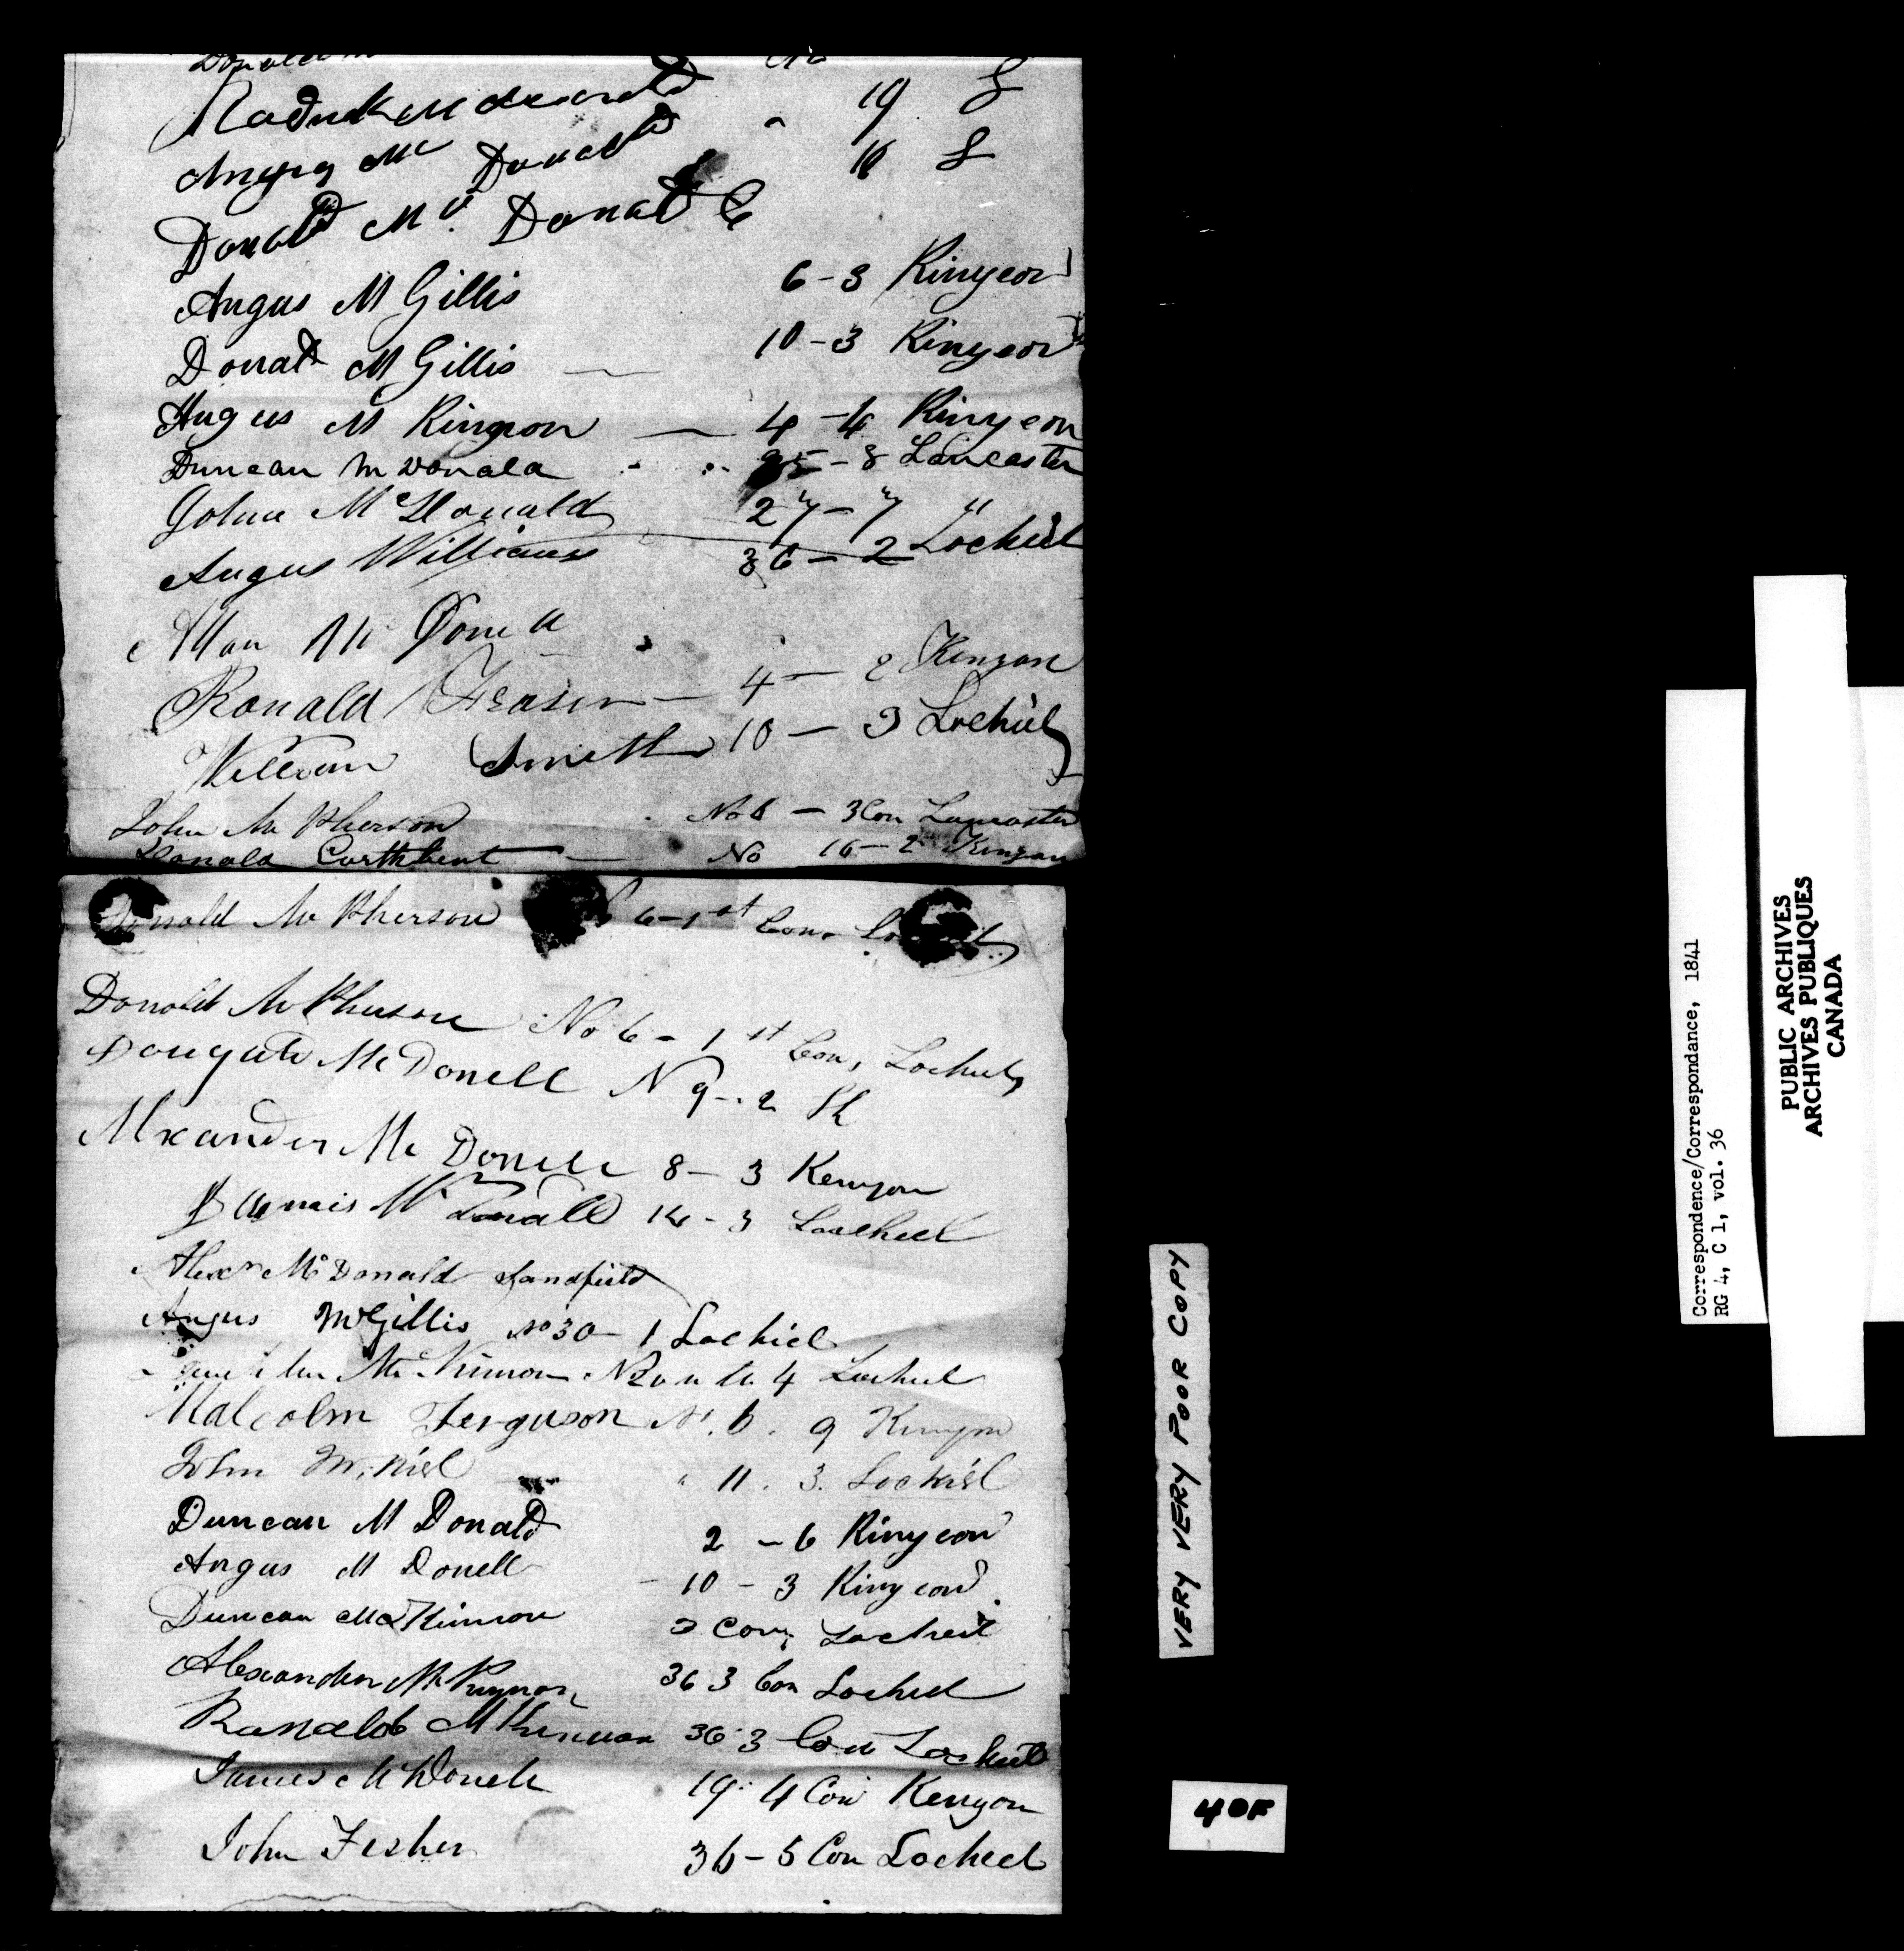 19 L
Angus Mc Donald 16 L
Donald Mc Donald
Angus M Gillis 6 - 3 Kinyeon
Donald M Gillis 10 - 3 Kinyeon
Angus M Kinnon 4 - 4 Kinyeon
Duncan McDonald 25 - 8 Lancaster
John McDonald 27 - 7 "
Angus Williams 36 - 2 Lochiel
Allan Mc Donell
Ronald Fraser 4 - 2 Kenyon
William Smith 10 - 3 Lochiel
John Mc Pherson No 6 - 3 Con Lancaster
Donald Cuthbert No 16 - 2 Kenyon
Donald Mc Pherson 6 - 1st Con.
Donald Mc Pherson No 6 - 1st Con, Lochiel
Mc Donell N 9 - 2
Alxander Mc Donell 8 - 3 Kenyon
3 Locheel
Alexr McDonald Sandfield
Angus McGillis No 30 - 1 Lochiel
Mc Kinnon 4 Lochiel
Malcolm Ferguson No. 6. 9 Kenyon
John McNiel " 11. 3. Lochiel
Duncan M Donald 2 - 6 Kinyeon
Angus M Donell 10 - 3 Kinyeon
Duncan McKinnon 3 Con, Locheil
Alexander Mc Kynnon 36 3 Con Lochiel
Ranald McKinnon 36 3 Con Lochiel
James McDonell 19 - 4 Con Kenyon
John Fisher 36 - 5 Con Locheel
VERY VERY POOR COPY
40F
Correspondence/Correspondance, 1841
RG 4, C 1, vol. 36
PUBLIC ARCHIVES
ARCHIVES PUBLIQUES
CANADA